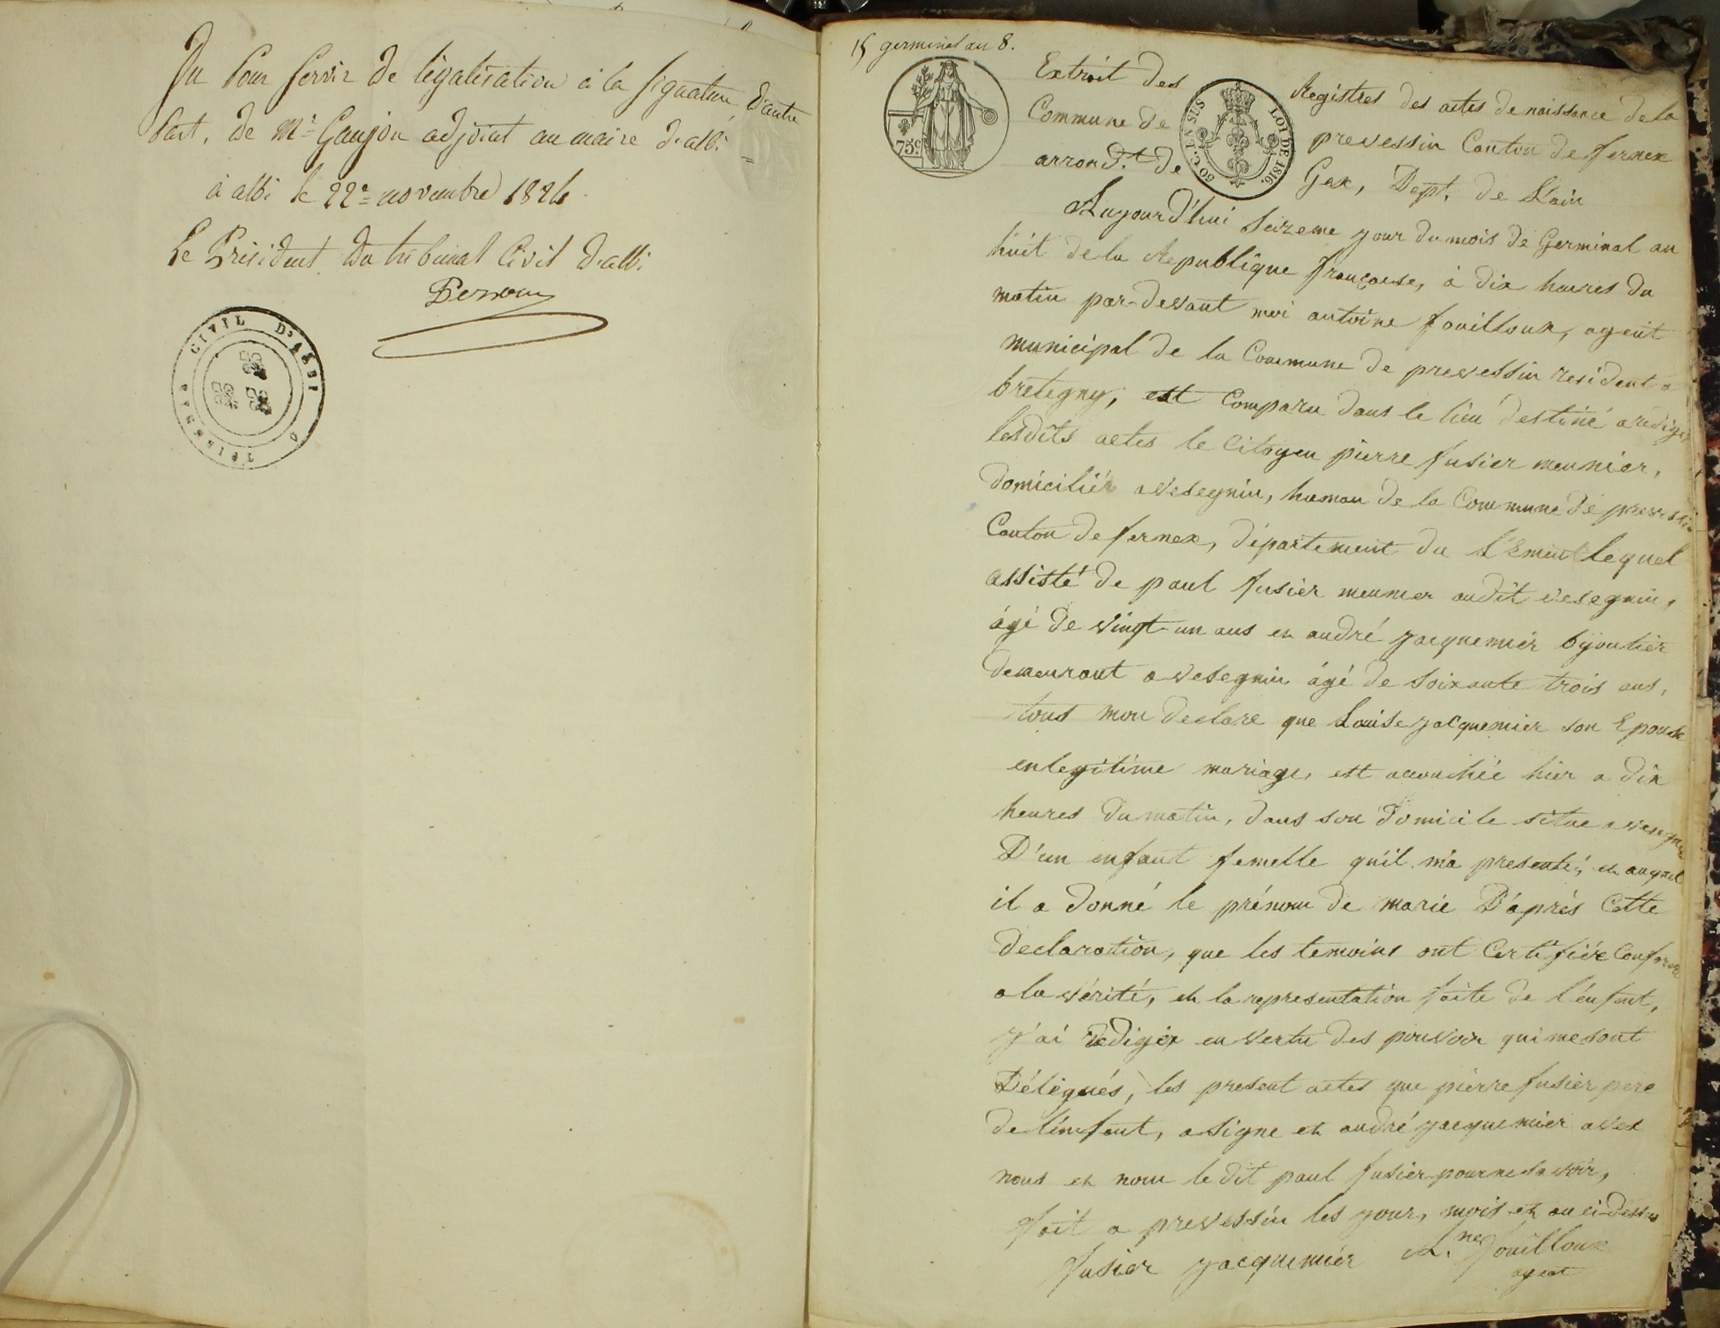 Vu Pour servir de légalisation à la signature, d'autre
Part, de Mr. Gaujou adjoint au maire d'albi
à albi le 22e novembre 1824
Le Président Du tribunal Civil d'albi
TRIBUNAL CIVIL D'ALBI
15 germinal an 8.
75c
50 C. EN SUS
LOI DE 1816.
Extrait des Registres des actes de naissance de la
Commune de prevessin Canton de fernex
arrondt. de Gex, Dept. de L'ain
Aujourd'hui Seizeme jour du mois de Germinal an
huit de la Republique françaese, à dix heures du
matin par-devant moi antoine fouilloux, agent
municipal de la Commune de prevessin resident a
bretegny, est Comparu dans le lieu destiné a redige
lesdits actes le Citoyen pierre fusier meunier,
domiciliér a vesegnin, hamau de la Commune de prevessin
Canton de fernex, département du L'éman lequel
assisté de paul fusier meunier audit vesegnin,
âgé de vingt-un ans et andré jacquemier bijoutier
demeurant a vesegnin âgé de soixante trois ans,
tous mon declare que Louise jacquemier son Epouse
en legitime mariage, est accouchée hier a dix
heures du matin, dans son domicile situe a vesegnin
D'un enfant femelle qu'il m'a presenté, et auquel
il a donné le prénom de marie D'áprés Cette
declaration, que les temoins ont Certifiér Conforme
a la vérité, et la representation faite de l'énfant,
j'ai rédiger en vertu des pouvoir qui me sont
Délégués, les present actes que pierre fusier pere
de l'énfant, a signe et andré jacquemier avec
nous et nom le dit paul fusier pour ne savoir,
fait a prevessin les jour, mois et an ci-dessus
fusier jacquemier A.ne fouilloux
agent